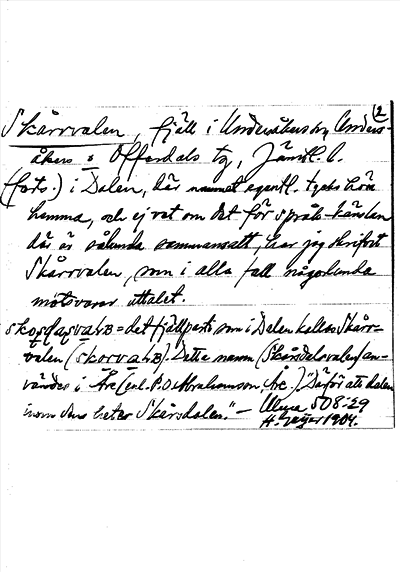 (2
Skårrvalen, fjäll i Undersåkers sn, Unders-
åkers o Offerdals tg, Jämtl. l.
(forts.) i Dalen, där namnet egentl. tycks höra
hemma, och ej vet om det för språk-känslan
där är sålunda sammansatt, har jag skrifvit
Skårrvalen, som i alla fall någorlunda
motsvarar uttalet.
= det fjällparti som i Dalen kallas Skårr-
valen. Detta namn (Skårsdalsvalen) an-
vändes i Åre (enl. P. O. Abrahamsson, Åre). "Därför att dalen
inom den heter Skårsdalen." – Ulma 508:29
H. Geijer 1904.